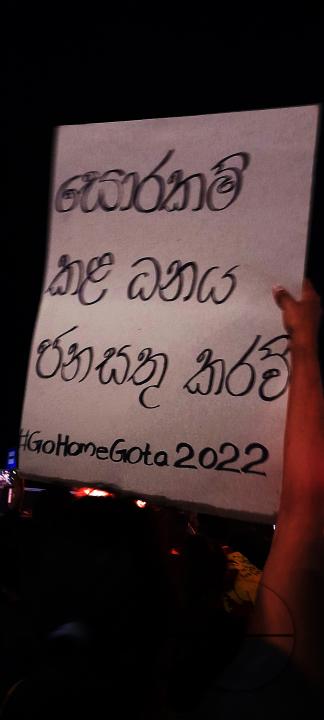 සොරකම්
කළ ධනය
ජනසතු කරව්
#GoHomeGota2022